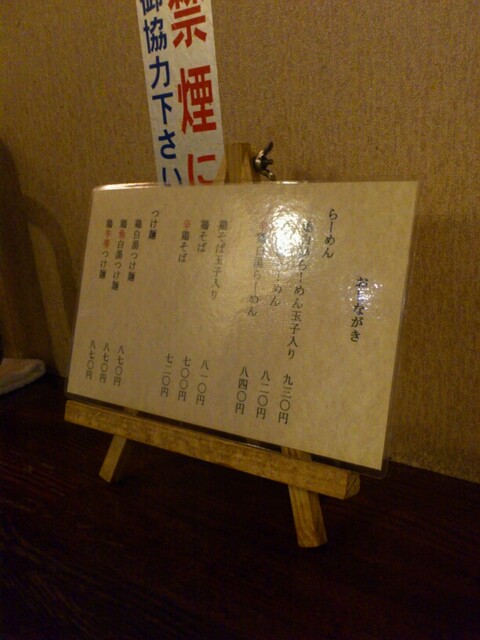 禁煙に
御協力下さい
おしながき
らーめん
らーめん玉子入り 九三〇円
らーめん 八二〇円
白湯らーめん 八四〇円
鶏そば玉子入り 八一〇円
鶏そば 七〇〇円
辛鶏そば 七二〇円
つけ麺
鶏白湯つけ麺 八七〇円
鶏魚白湯つけ麺 八七〇円
鶏辛つけ麺 八七〇円